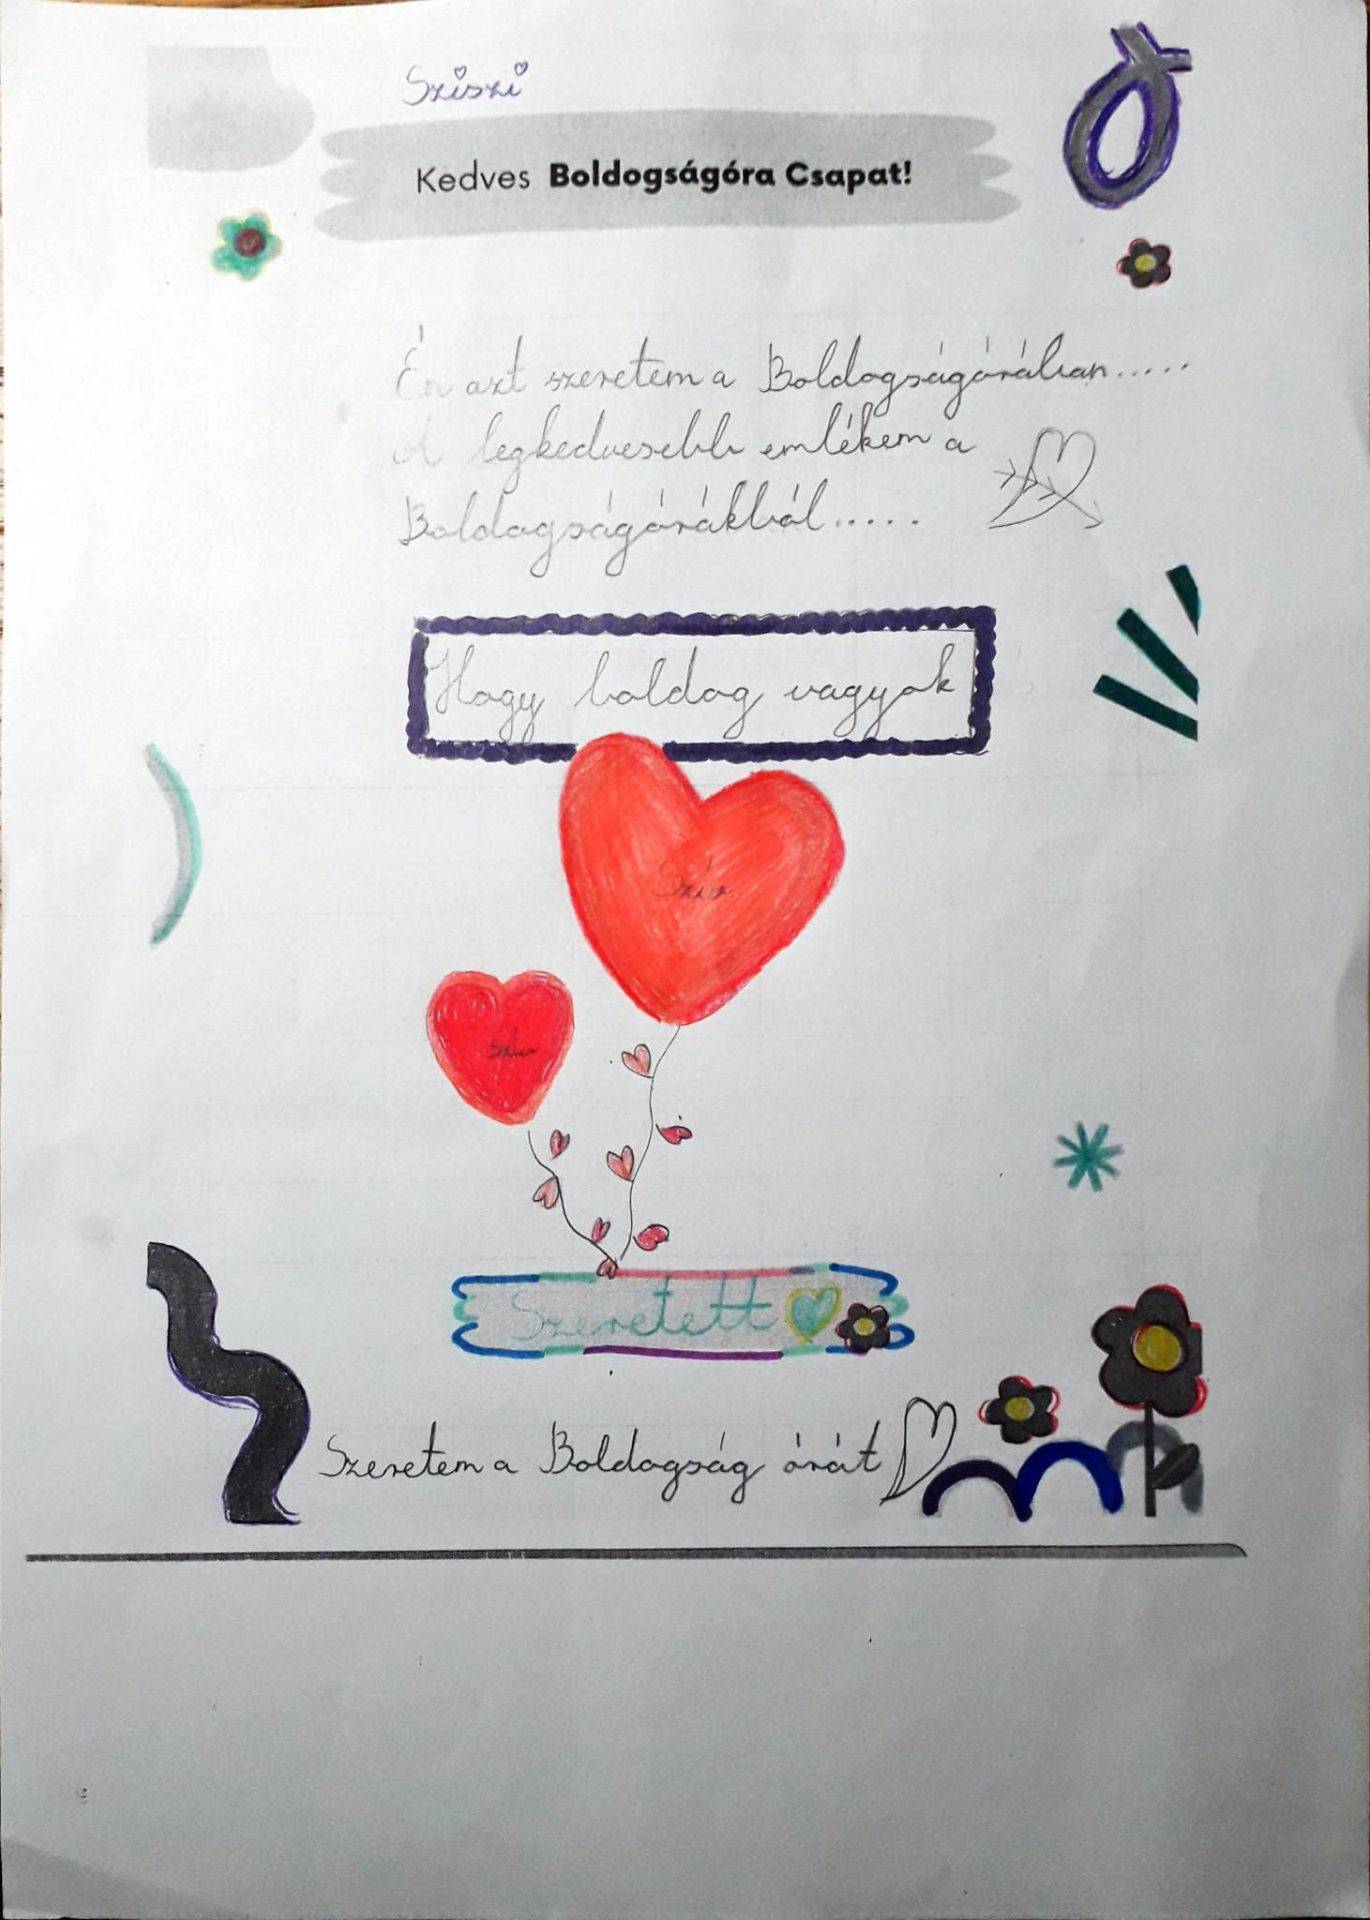 Sziszi
Kedves Boldogságóra Csapat!
Én azt szeretem a Boldogságórában.....
A legkedvesebb emlékem a
Boldogságórákból.....
Hogy boldog vagyok
Szív
Szív
Szeretett
Szeretem a Boldogság órát